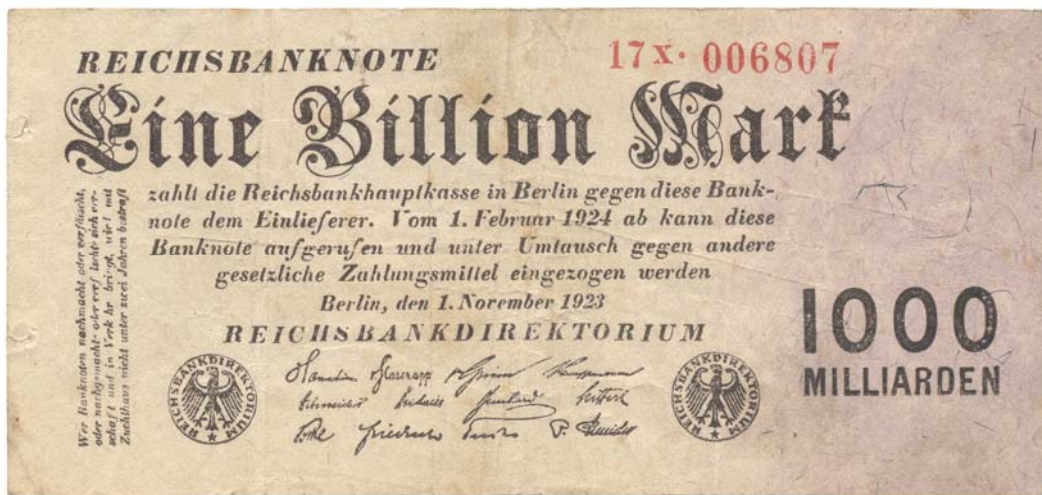 REICHSBANKNOTE
17x· 006807
Eine Billion Mark
zahlt die Reichsbankhauptkasse in Berlin gegen diese Bank-
note dem Einlieferer. Vom 1. Februar 1924 ab kann diese
Banknote aufgerufen und unter Umtausch gegen andere
gesetzliche Zahlungsmittel eingezogen werden
Berlin, den 1. November 1923
REICHSBANKDIREKTORIUM
REICHSBANKDIREKTORIUM
REICHSBANKDIREKTORIUM
1000
MILLIARDEN
Wer Banknoten nachmacht oder verfälscht,
oder nachgemachte oder verfälschte sich ver-
schafft und in Verkehr bringt, wird mit
Zuchthaus nicht unter zwei Jahren bestraft